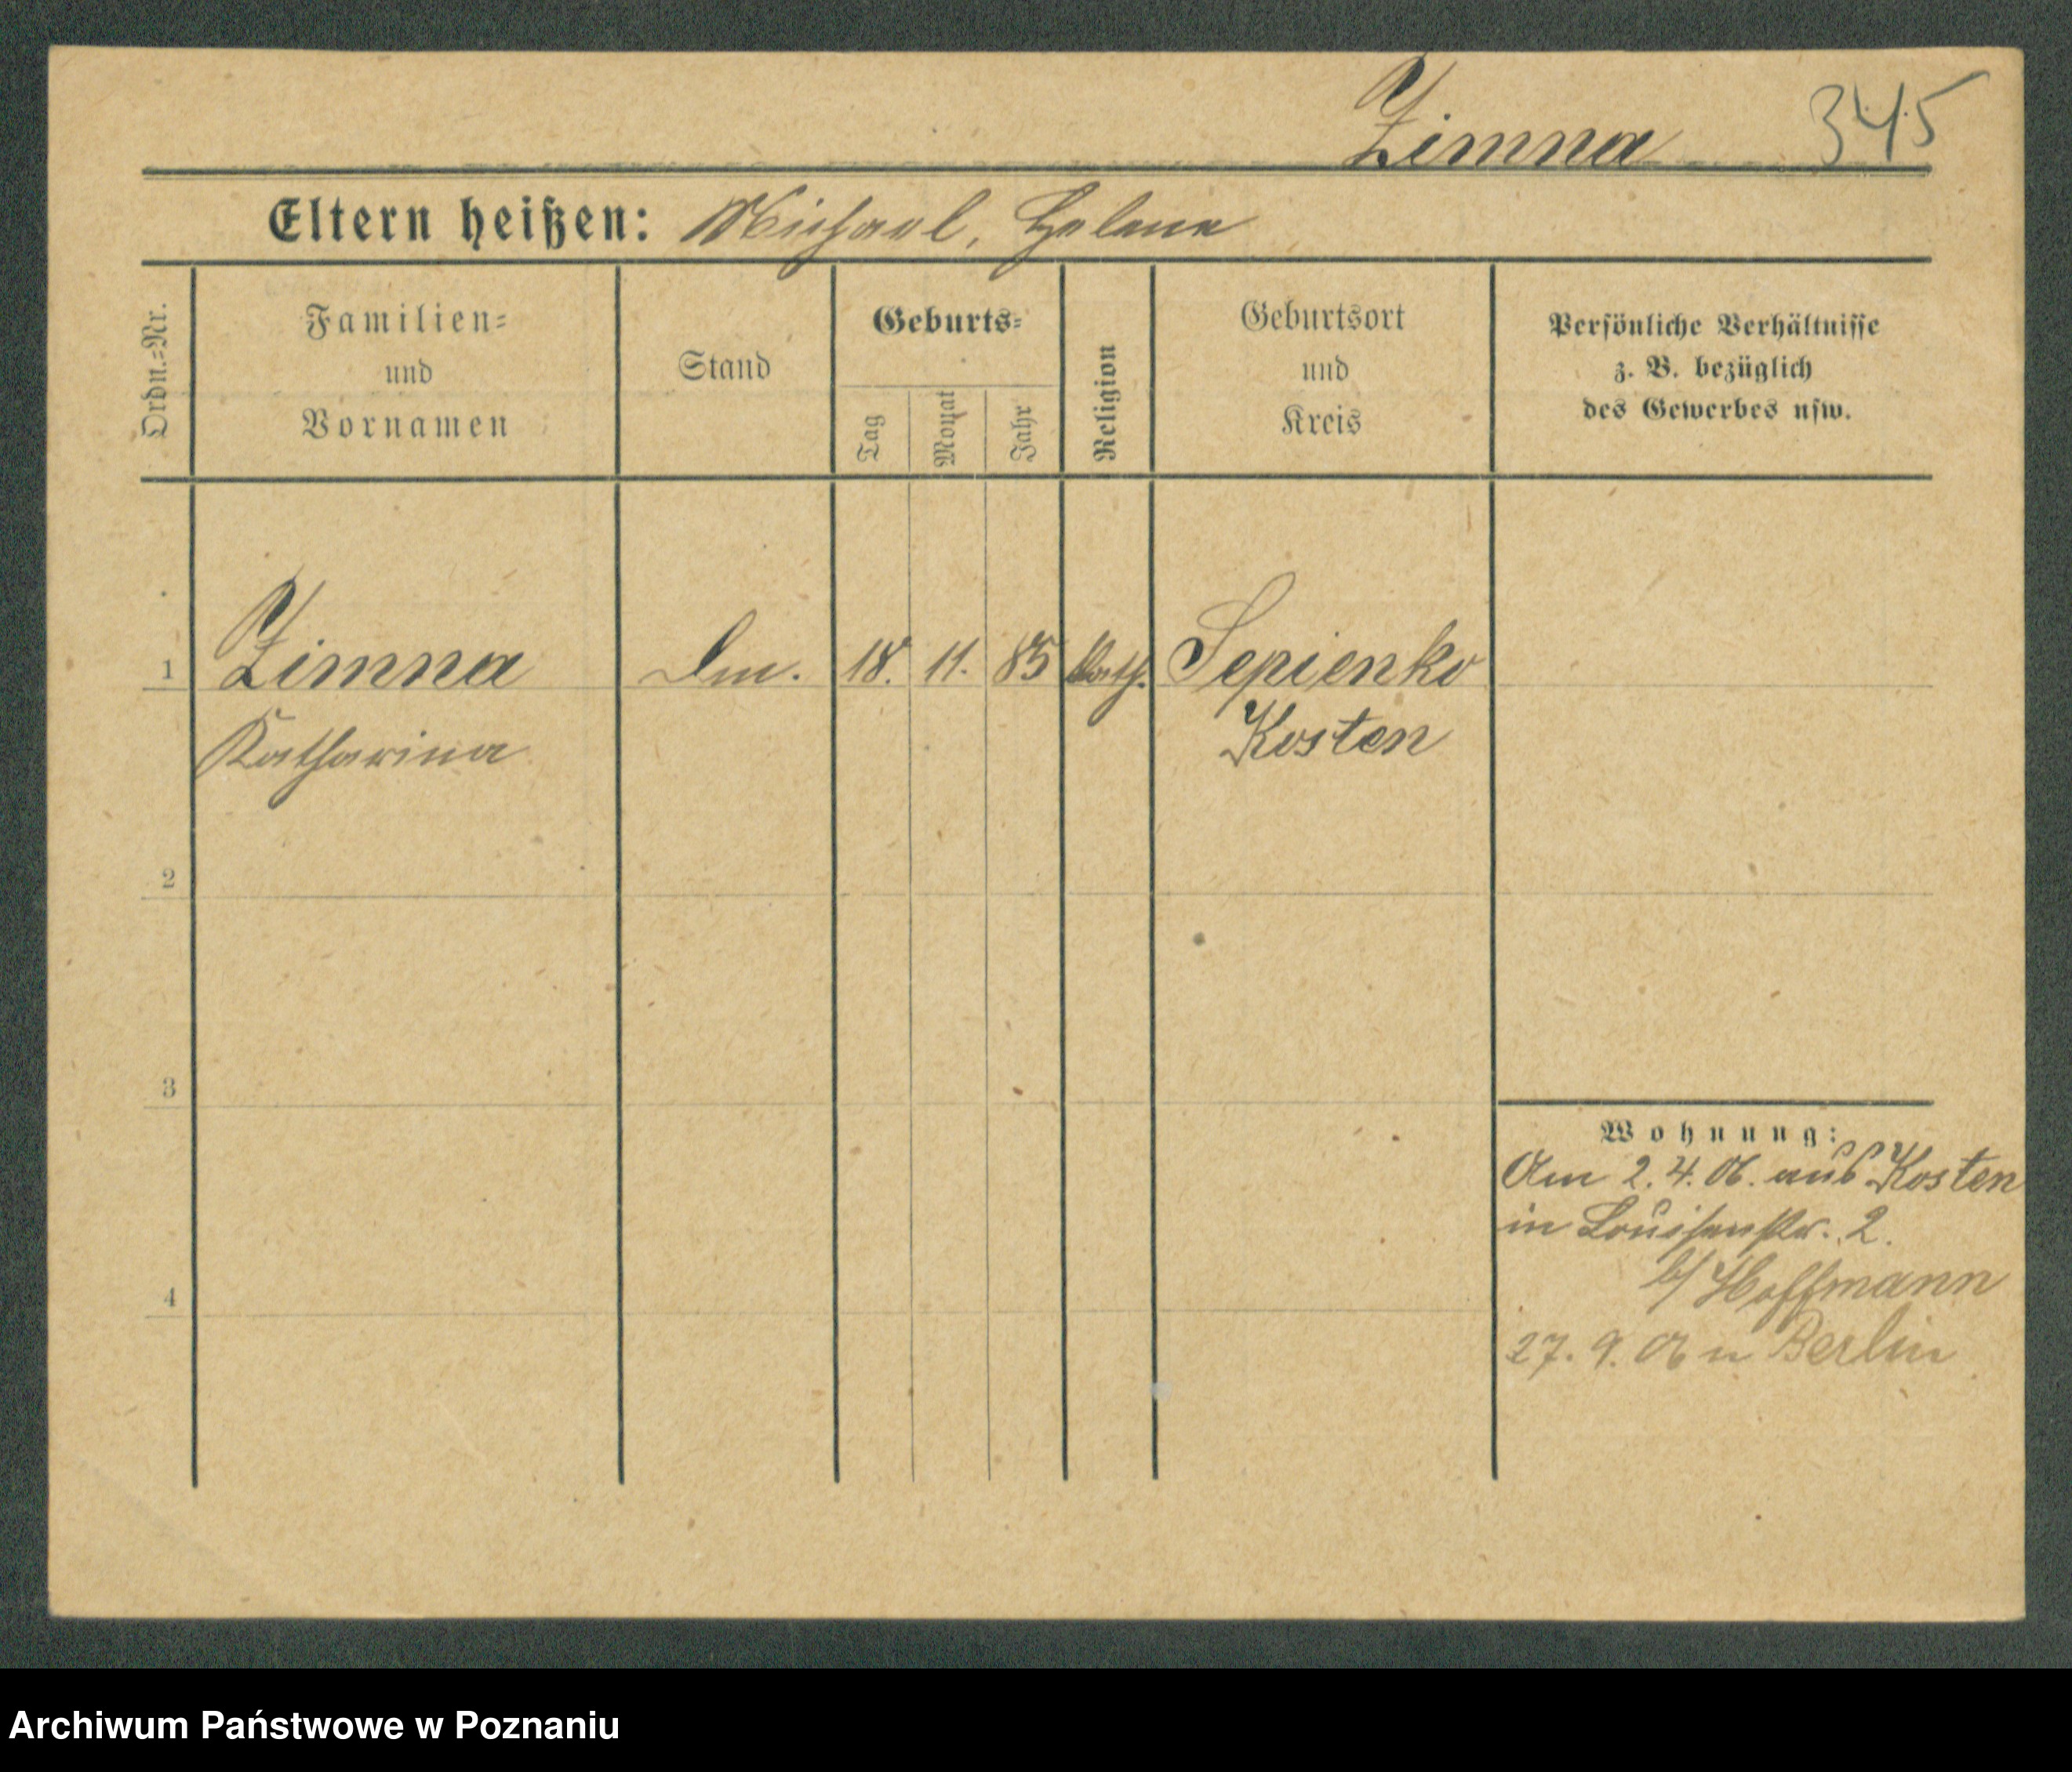 Zimna 345
Eltern heißen: Michael, Helene
Ordn.-Nr.
Familien-
und
Vornamen
Stand
Geburts-
Tag
Monat
Jahr
Religion
Geburtsort
und
Kreis
Persönliche Verhältnisse
z. B. bezüglich
des Gewerbes usw.
1 Zimna 18. 11. 85 kath. Sepienko
Katharina Kosten
2
3
4
Wohnung:
Am 2. 4. 06. aus Kosten
in Louisenstr. 2.
b/ Hoffmann
27. 9. 06 n Berlin
Archiwum Państwowe w Poznaniu